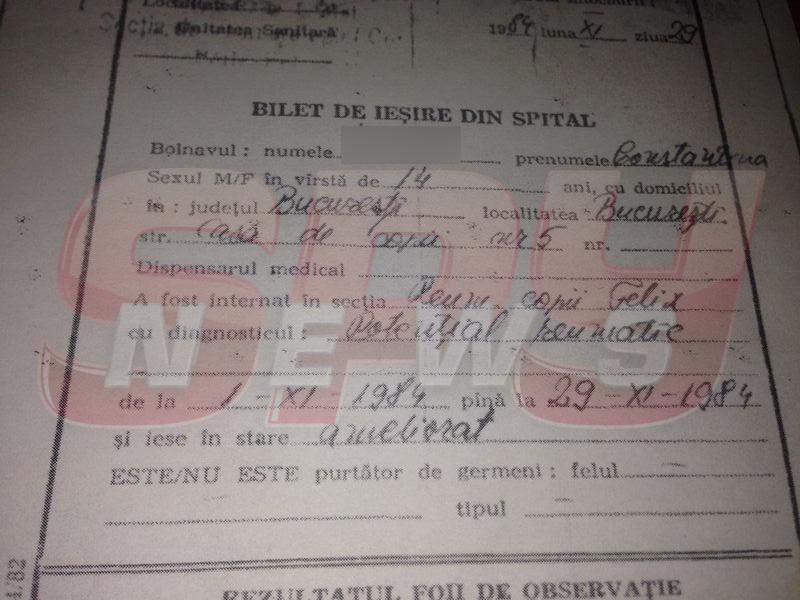 Localitatea
Secția Unitatea Sanitară
1984 luna XI ziua 29
BILET DE IEȘIRE DIN SPITAL
Bolnavul : numele prenumele Constantina
Sexul M/F în vîrstă de 14 ani, cu domiciliul
în : județul București localitatea București.
str. Casa de copii nr 5 nr.
Dispensarul medical
A fost internat în secția Reum. copii Felix
cu diagnosticul : Potențial reumatic
de la 1 - XI - 1984 pînă la 29 - XI - 1984
și iese în stare ameliorat
ESTE/NU ESTE purtător de germeni : felul
tipul
REZULTATUL FOII DE OBSERVAȚIE
SPY
NEWS